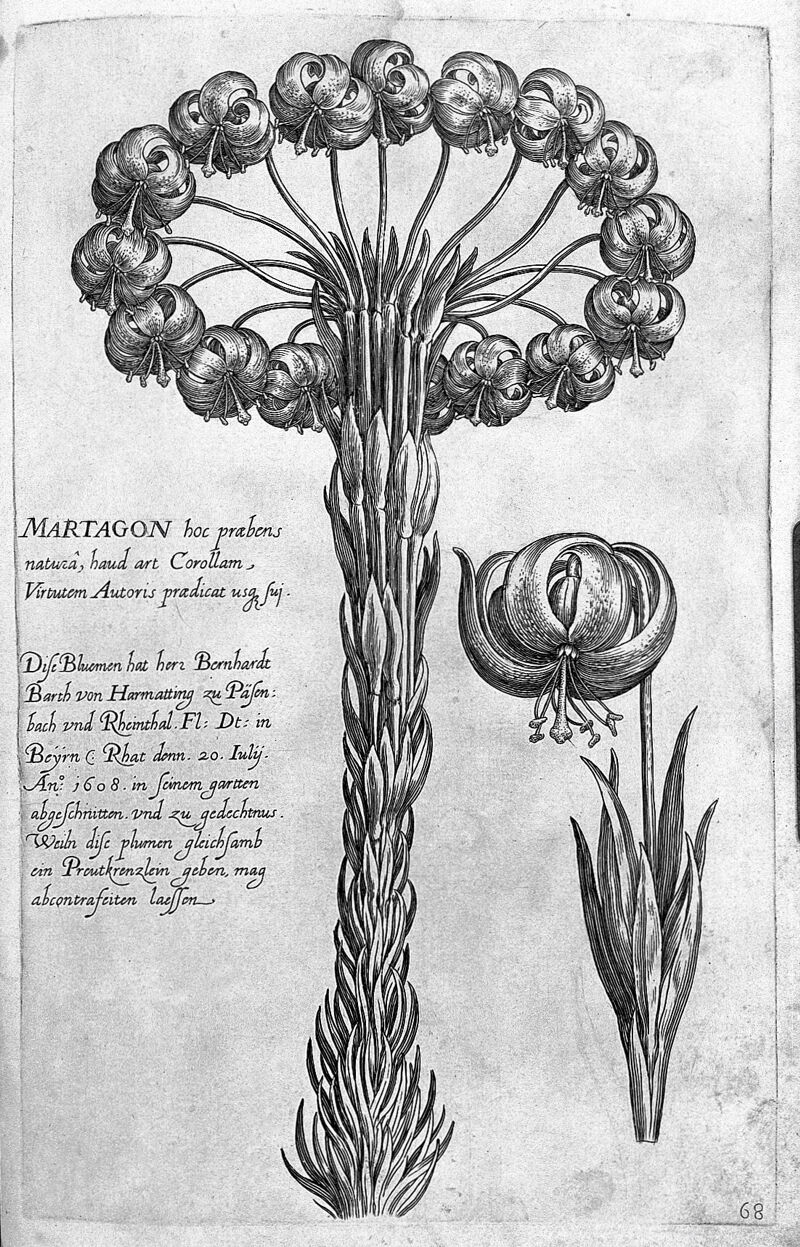 MARTAGON hoc præbens
naturâ, haud art Corollam,
Virtutem Autoris prædicat usq₃ suj.
Dise Bluemen hat herr Bernhardt
Barth von Harmatting zu Päsen:
bach vnd Rheinthal. Fl: Dt: in
Beÿrn Rhat denn. 20. Iulij.
An.º 1608. in seinem gartten
abgeschnitten. vnd zu gedechtnus.
Weiln dise plumen gleichsamb
ein Preutkrenzlein geben, mag
abcontrafeiten laessen
68